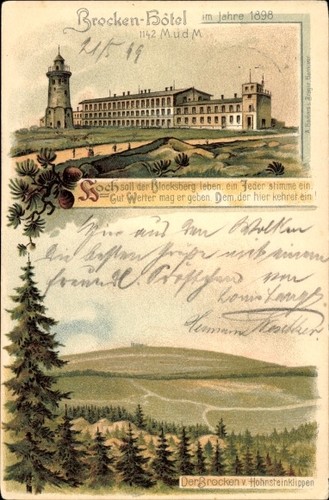 Brocken-Hôtel im Jahre 1898
1142 M.ü.d.M
21/5 99
Hoch soll der Blocksberg leben, ein Jeder stimme ein.
Gut Wetter mag er geben Dem, der hier kehret ein!
Nur aus den Wolken
die besten Grüße mit einem
freundl. Pröstchen von
Louis Lange
Hermann
Der Brocken v. Hohnsteinklippen